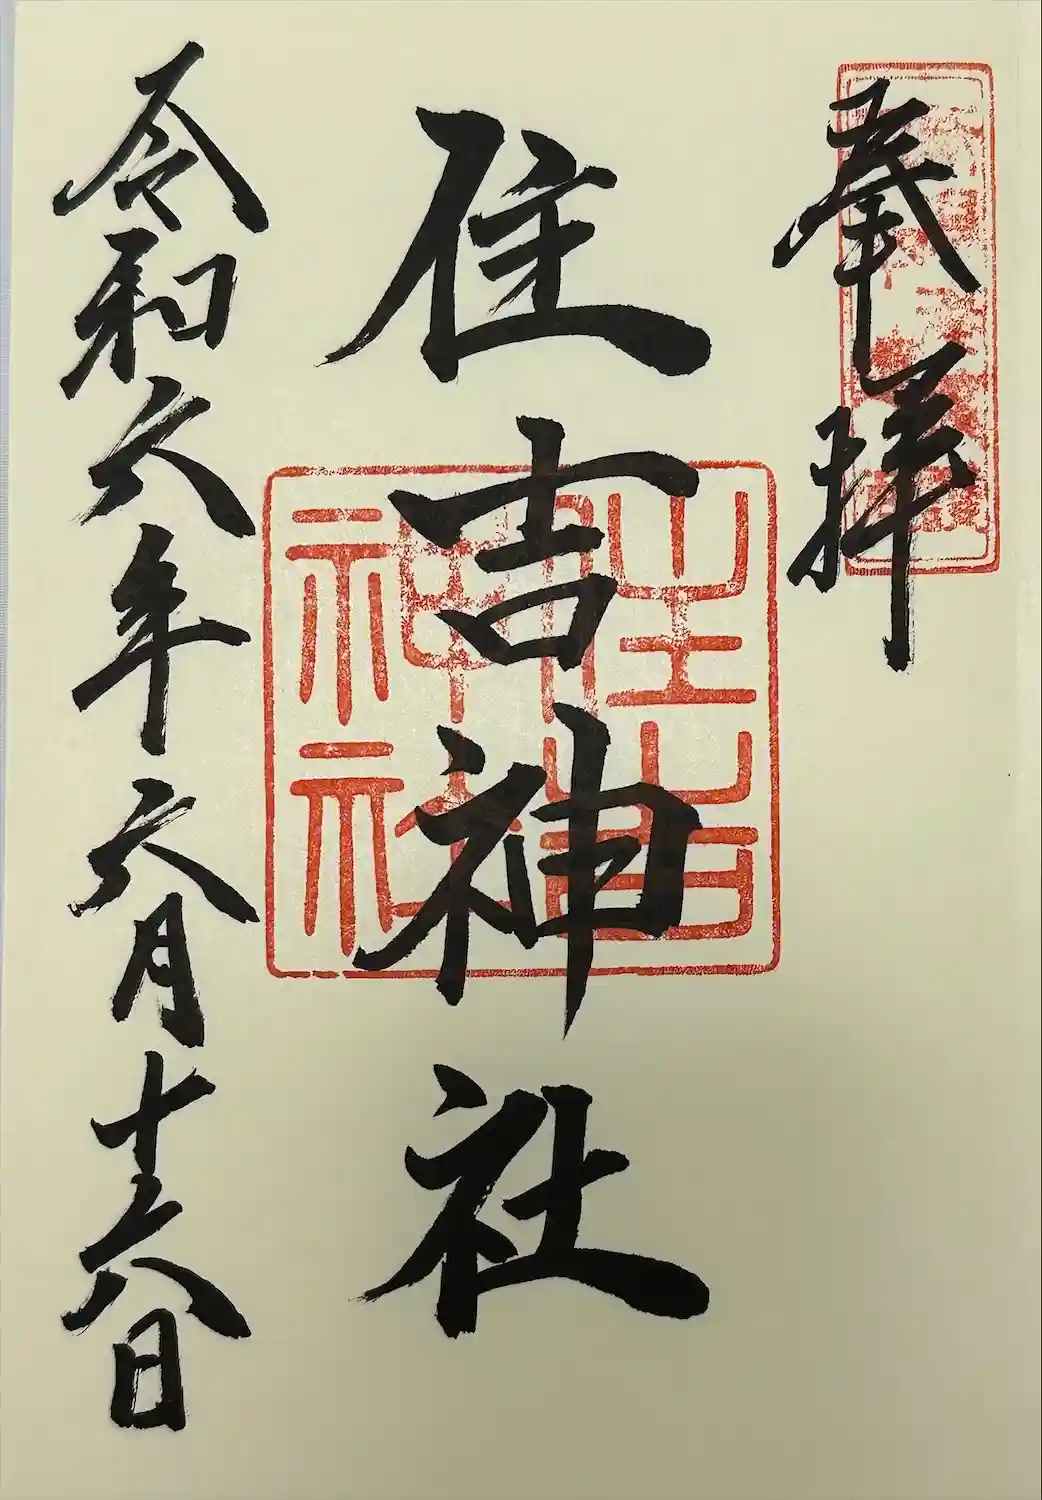 奉拝
住吉神社
住吉神社
令和六年六月十六日